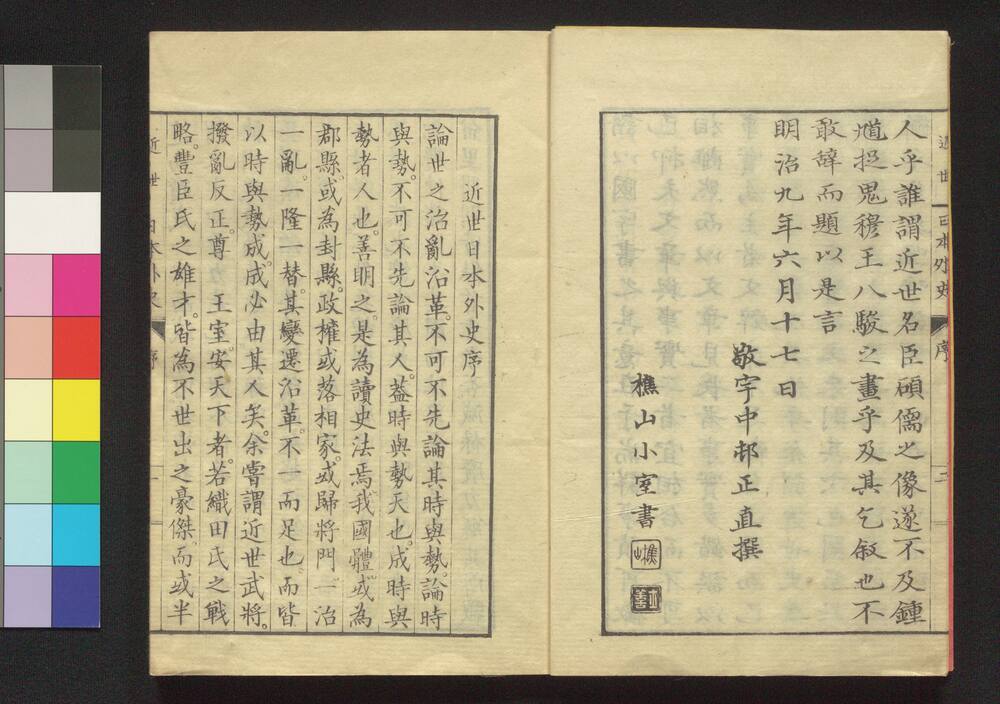 人乎誰謂近世名臣碩儒之像遂不及鍾
馗捉鬼穆王八駿之畫乎及其乞敘也不
敢辭而題以是言
明治九年六月十七日
敬宇中邨正直撰
樵山小室書
近世日本外史序
論世之治亂沿革。不可不先論其時與勢。論時
與勢。不可不先論其人。蓋時與勢天也。成時與
勢者人也。善明之。是為讀史法焉。我國體。或為
郡縣。或為封縣。政權或落相家。或歸將門。一治
一亂。一隆一替。其變遷沿革。不一而足也。而皆
以時與勢成。成必由其人矣。余嘗謂近世武將。
撥亂反正。尊 王室。安天下者。若織田氏之戰
略。豐臣氏之雄才。皆為不世出之豪傑。而或半
近世日本外史
序